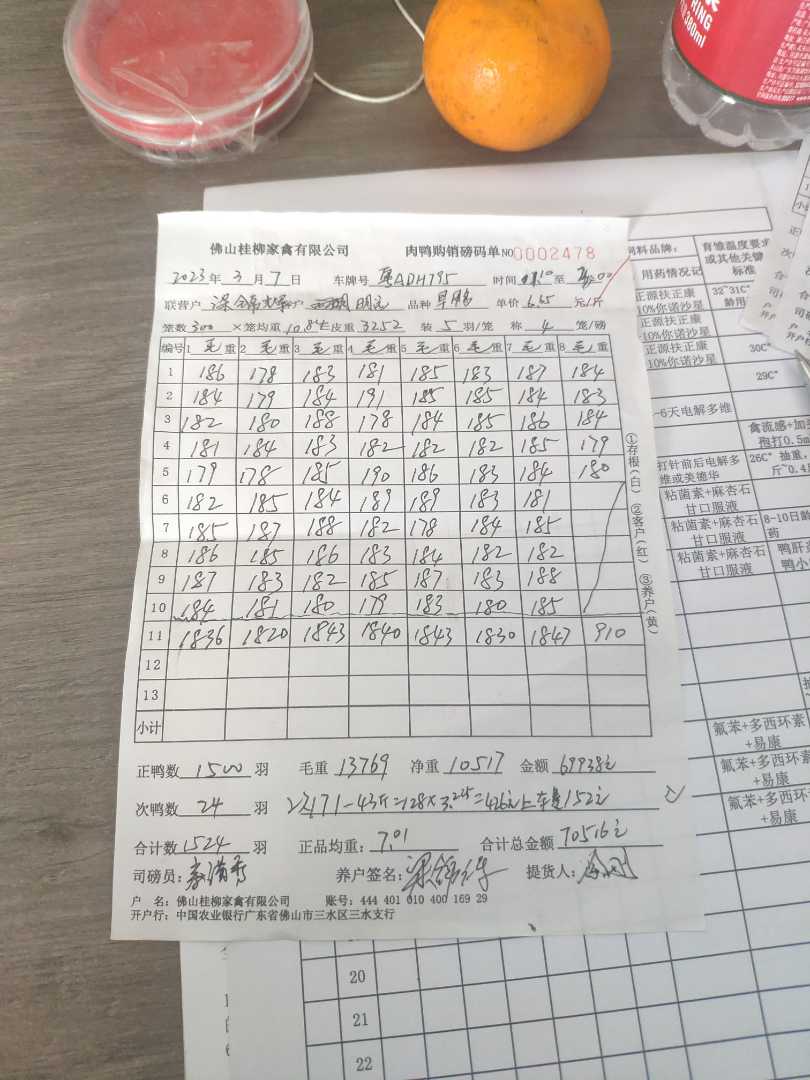 RING
380ml
佛山桂柳家禽有限公司 肉鸭购销磅码单 NO 0002478
2023年 3月 7日 车牌号 粤ADH795 时间 至
联营户 户 品种 单价 6.65 元/斤
笼数 300 ×笼均重 10.84 皮重 3252 装 5 羽/笼 称 4 笼/磅
编号 1 毛重 2 毛重 3 毛重 4 毛重 5 毛重 6 毛重 7 毛重 8 毛重
1 186 178 183 181 185 183 187 184
2 184 179 184 191 185 185 184 183
3 182 180 188 178 184 185 186 184
4 181 184 183 182 182 182 185 179
5 179 178 185 190 186 183 184 180
6 182 185 184 189 189 183 181
7 185 187 188 182 178 184 185
8 186 185 186 183 184 182 182
9 187 183 182 185 187 183 188
10 184 181 180 179 183 180 185
11 1836 1820 1843 1840 1843 1830 1847 910
12
13
小计
①存根(白) ②客户(红) ③养户(黄)
正鸭数 1500 羽 毛重 13769 净重 10517 金额 69938元
次鸭数 24 羽 171-43斤=128×3.25=426元上车152元
合计数 1524 羽 正品均重: 7.01 合计总金额 70516元
司磅员: 养户签名: 提货人:
户 名: 佛山桂柳家禽有限公司 账号: 444 401 010 400 169 29
开户行: 中国农业银行广东省佛山市三水区三水支行
饲料品牌: 育雏温度要求
或其他关键
用药情况记 标准
正源扶正康 32~31C°
10%你诺沙星 龄用
正源扶正康
-10%你诺沙星
正源扶正康 30C°
-10%你诺沙星
29C°
-6天电解多维
禽流感+加
孢打0.5m
打针前后电解多 26C° 抽重,
维或美德华 斤~0.4
粘菌素+麻杏石
甘口服液
粘菌素+麻杏石 8-10日龄
甘口服液 药
粘菌素+麻杏石 鸭肝
甘口服液 鸭小
氟苯+多西环素
+易康
氟苯+多西环素
+易康
氟苯+多西环素
+易康
20
21
22